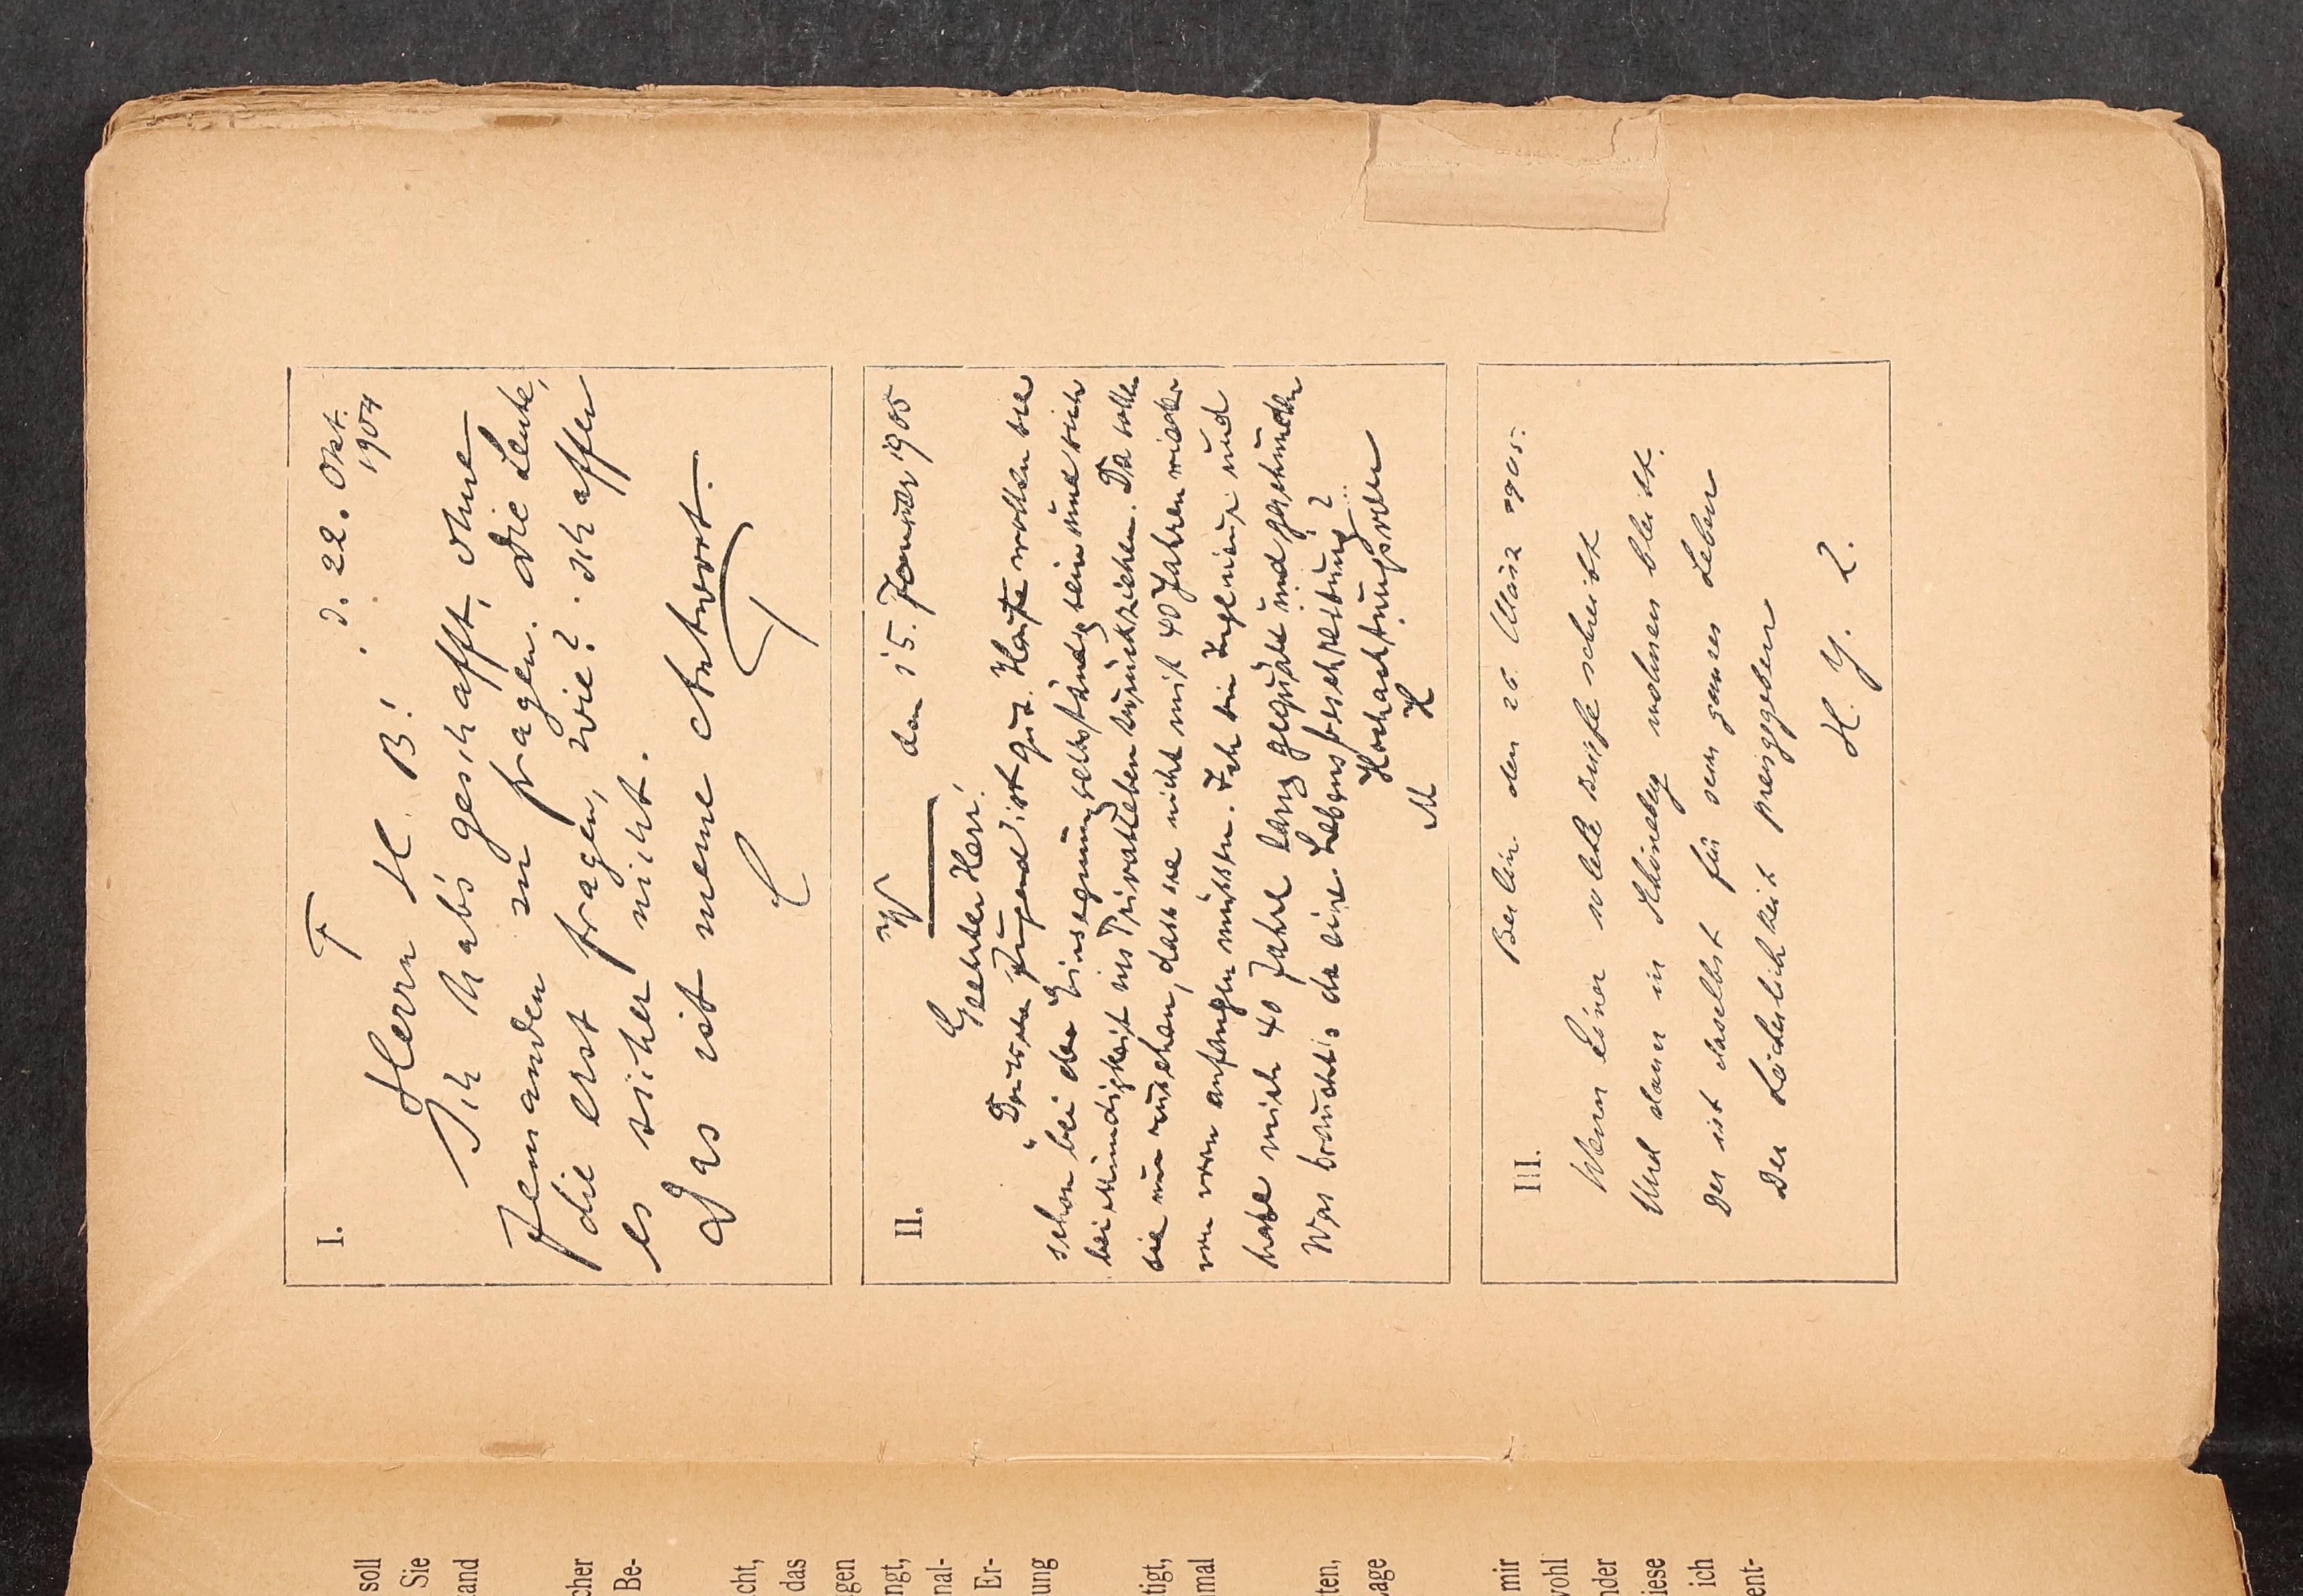 I.
F d. 22. Okt.
1904
Herrn H. B!
Ich hab's geschafft, ohne
Jemanden zu fragen. Die Leute,
die erst fragen, wie? schaffen
es sicher nicht.
Das ist meine Antwort.
II.
den 15. Januar 1905
Geehrter Herr!
„Deutsche Jugend" ist gut. Heute wollen sie
schon bei der Einsegnung selbständig sein und sich
bei Mündigkeit ins Privatleben zurückziehen. Da sollen
sie nur zusehen, dass sie nicht mit 40 Jahren wieder
von vorn anfangen müssten. Ich bin Ingenieur und
habe mich 40 Jahre lang gequält und geschunden
Was braucht's da eine Lebensbeschreibung?
Hochachtungsvoll
M H
III.
Berlin den 26. März 1905.
Wenn Einer solche Briefe schreibt
Und dann in Schöneberg wohnen bleibt.
Der ist daselbst für sein ganzes Leben
Der Lächerlichkeit preisgegeben
H. Y. Z.
soll
Sie
and
cher
Be-
cht,
das
gen
ngt,
nal-
Er-
ung
tigt,
mal
ten,
age
mir
vohl
nder
iese
ich
ent-